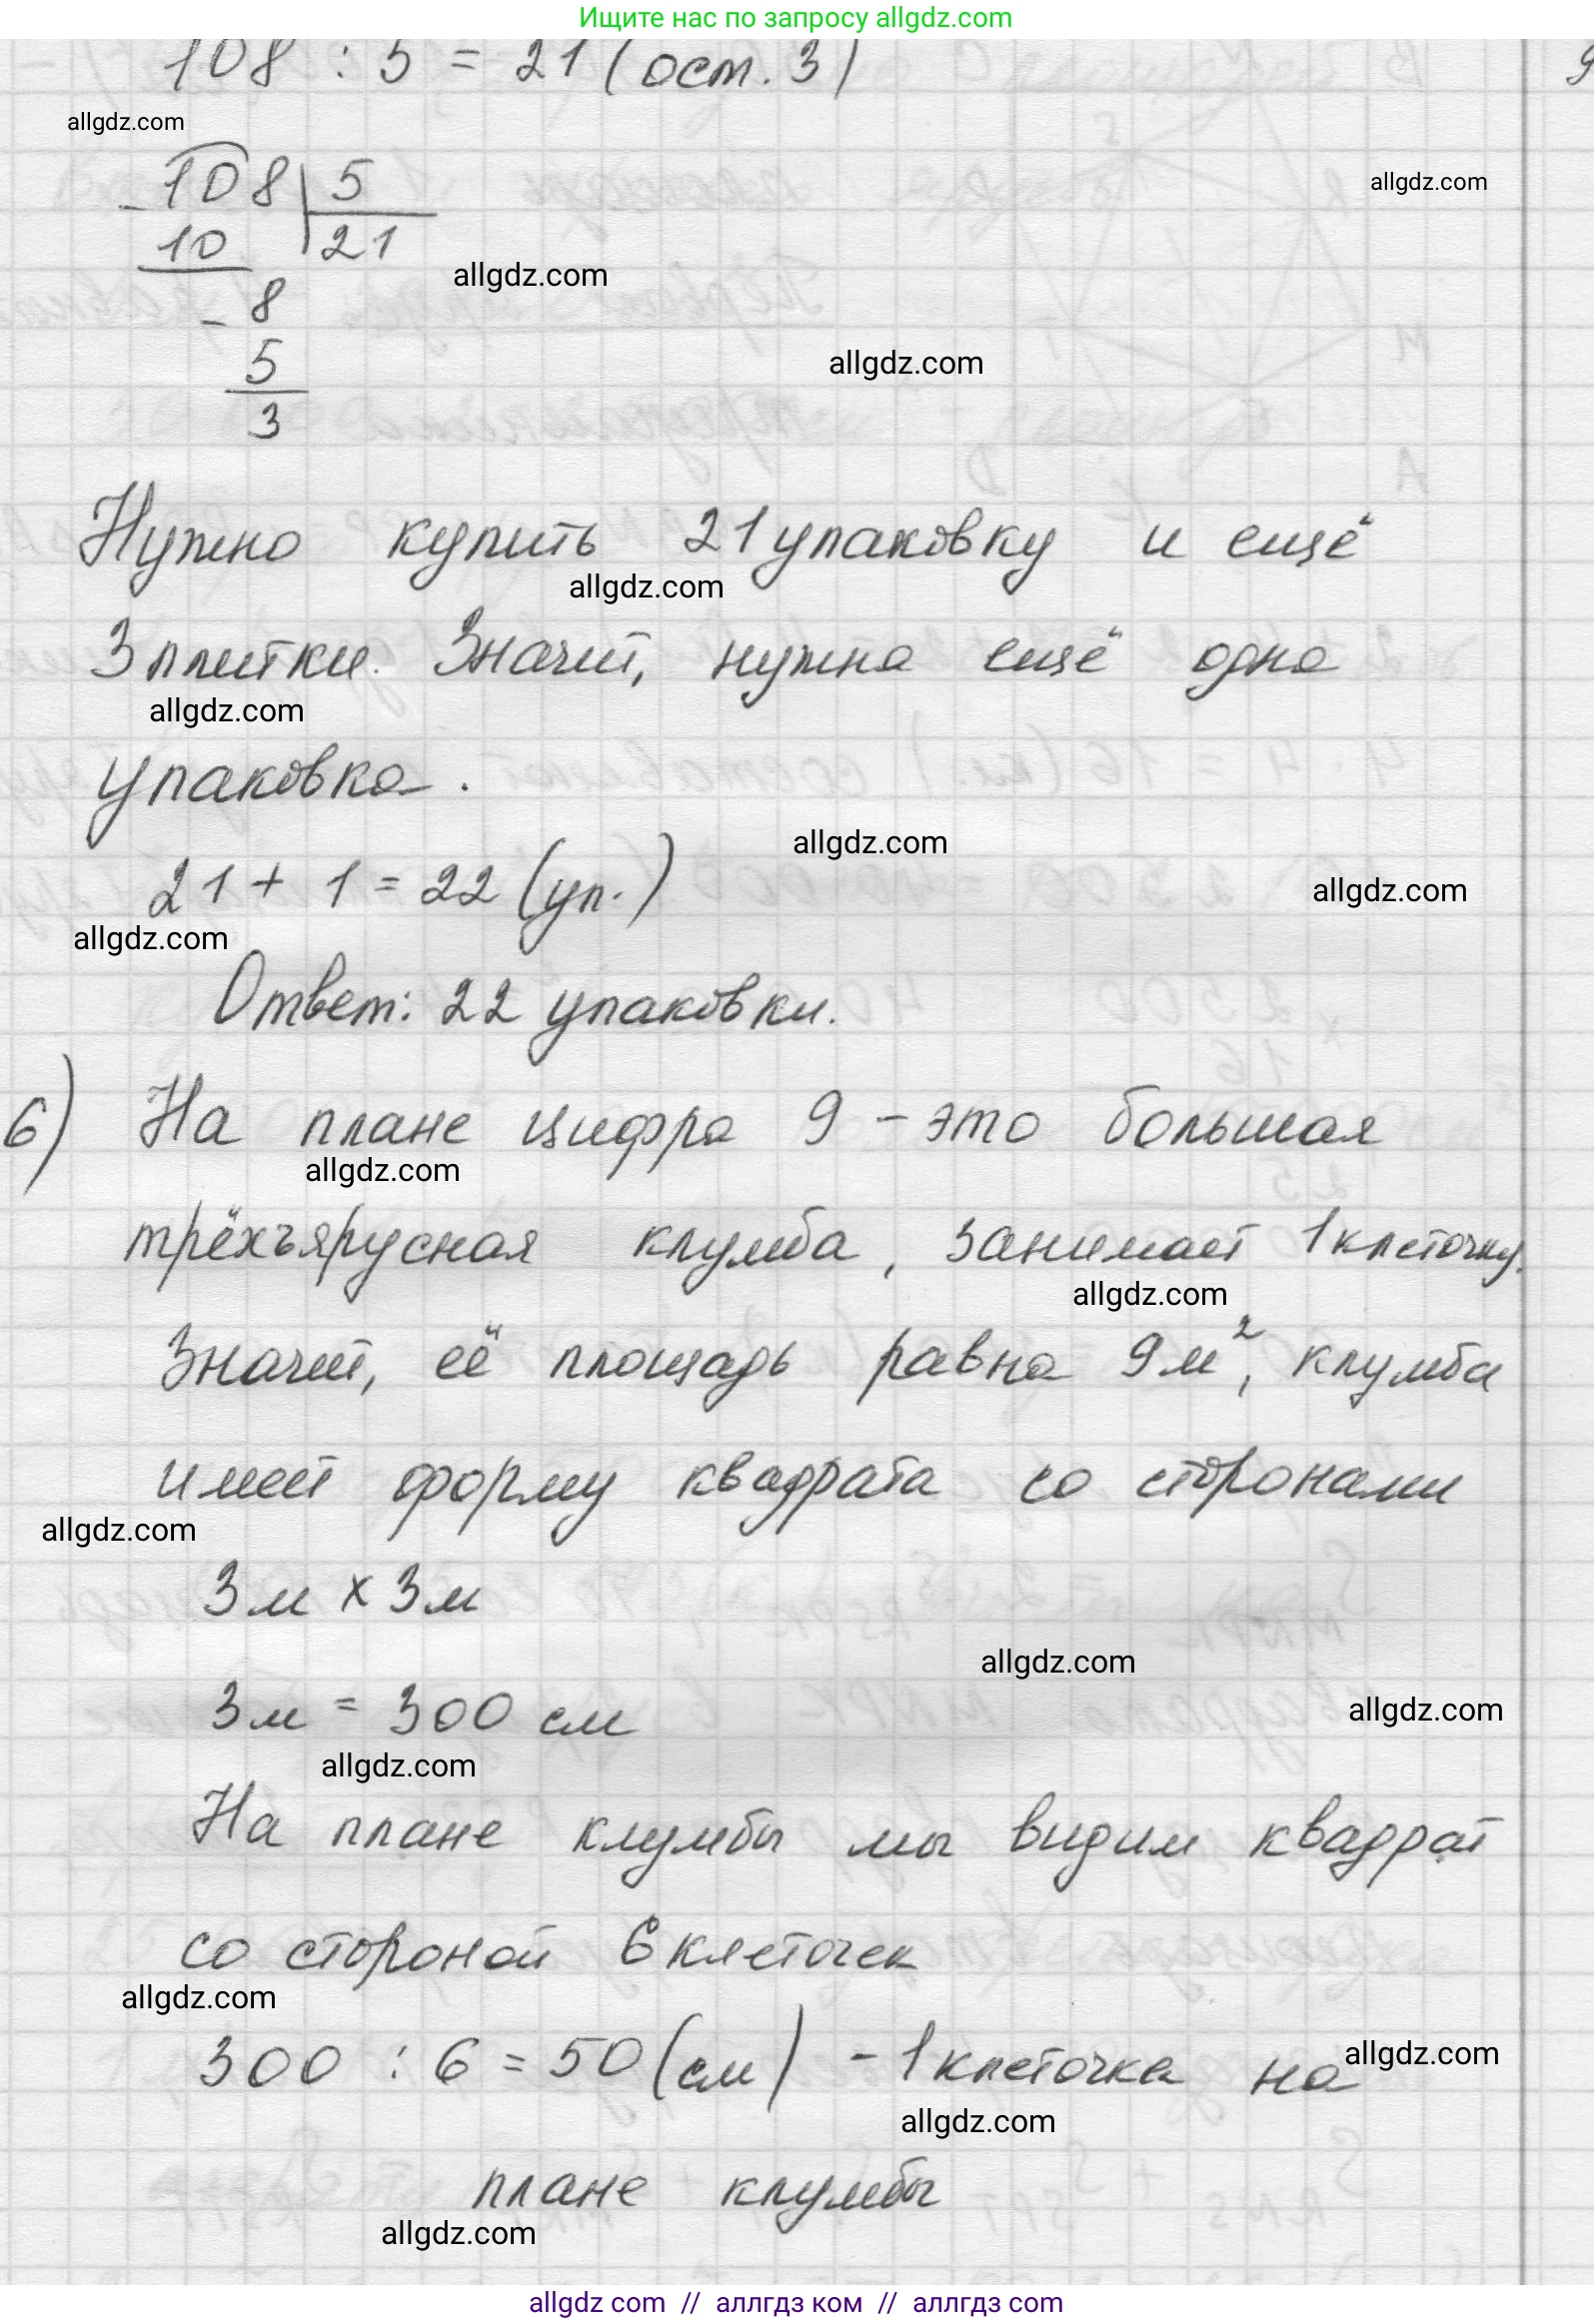 Ищите нас по запросу allgdz.com
108 : 5 = 21 (ост. 3)
allgdz.com
108 5
allgdz.com
10 21
allgdz.com
8
allgdz.com
5
3
Нужно купить 21 упаковку и ещё
allgdz.com
3 плитки. Значит, нужна ещё одна
allgdz.com
упаковка.
allgdz.com
21 + 1 = 22 (уп.)
allgdz.com
allgdz.com
Ответ: 22 упаковки.
6) На плане цифра 9 - это большая
allgdz.com
трёхъярусная клумба, занимает 1 клеточку.
allgdz.com
Значит, её площадь равна 9 м², клумба
имеет форму квадрата со сторонами
allgdz.com
3 м x 3 м
allgdz.com
3 м = 300 см
allgdz.com
allgdz.com
На плане клумбы мы видим квадрат
со стороной 6 клеточек
allgdz.com
300 : 6 = 50 (см) - 1 клеточка на
allgdz.com
allgdz.com
плане клумбы
allgdz.com
allgdz com // аллгдз ком // аллгдз com